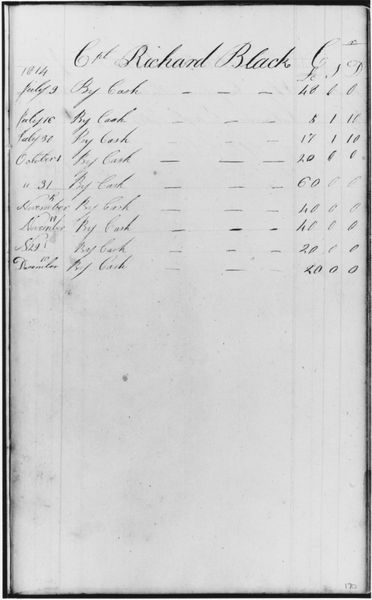 Cpt Richard Black Cr
1814 £ S D
July 9 By Cash — — — 48 0 0
July 16 By Cash — — — 5 1 10
July 30 By Cash — — — 17 1 10
October 1 By Cash — — — 20 0 0
" 31 By Cash — — — 60 0 0
November By Cash — — — 40 0 0
November By Cash — — — 40 0 0
By Cash — — — 20 0 0
December 10 By Cash — — — 20 0 0
170